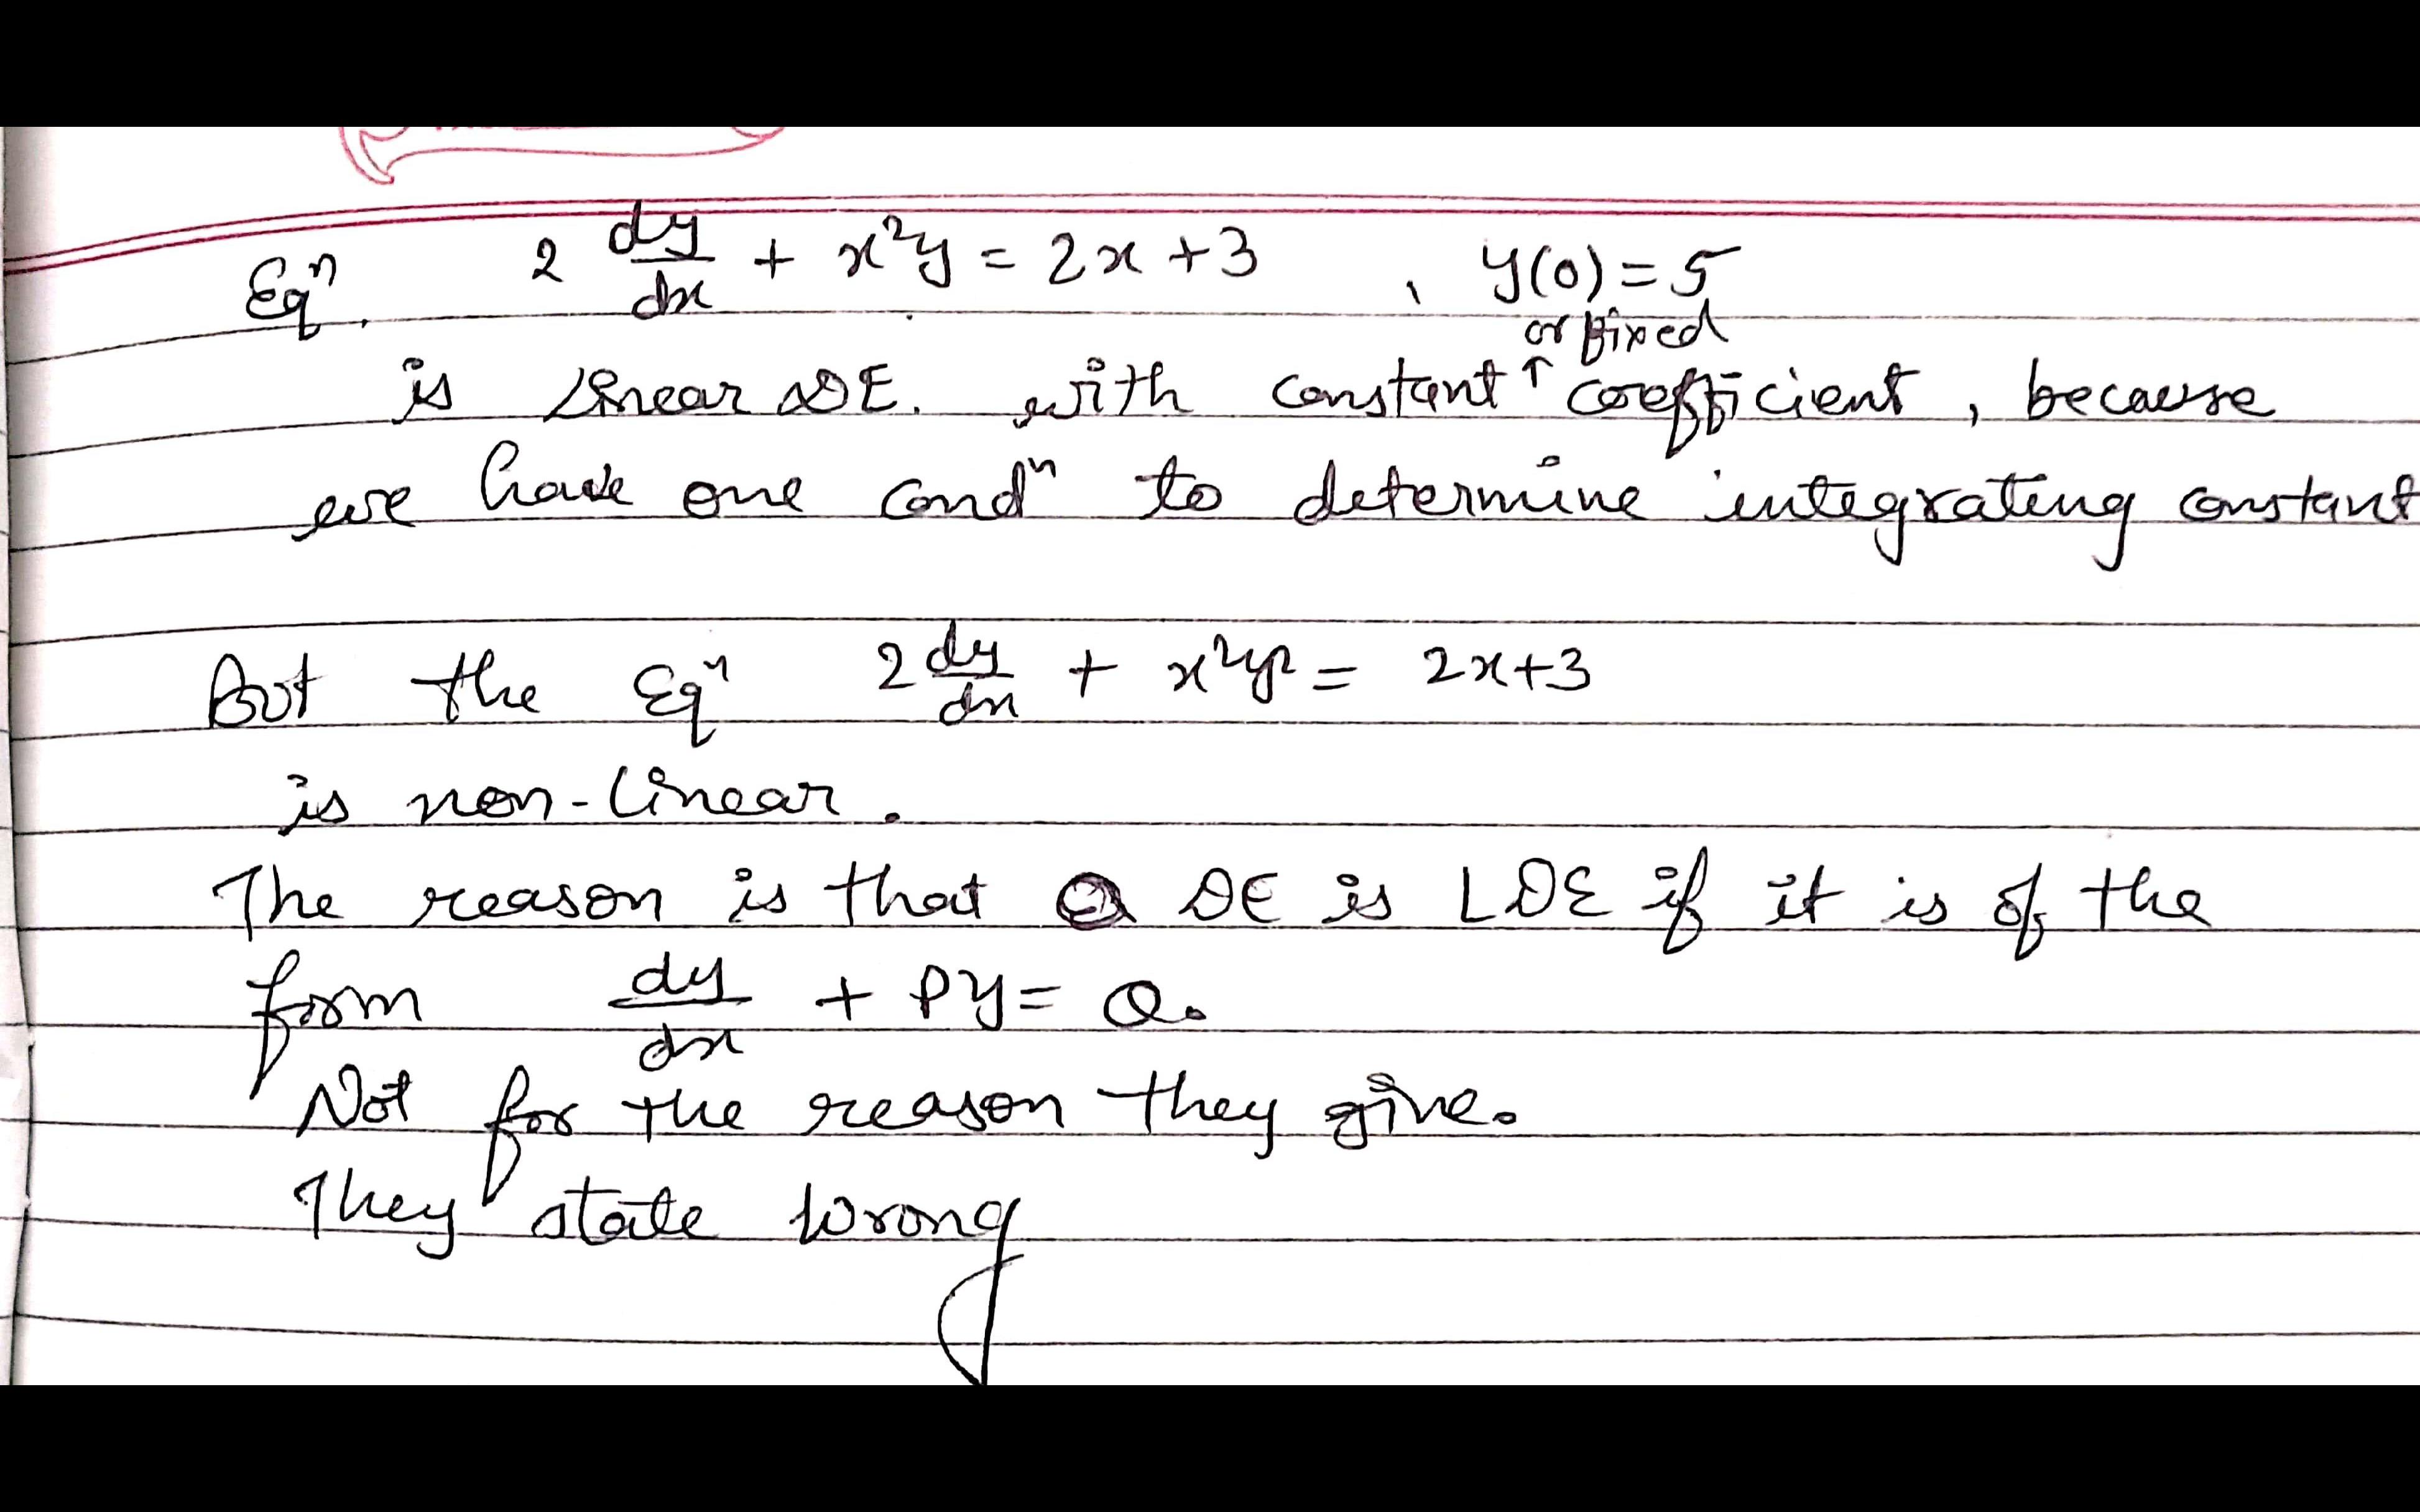 Eqⁿ. 2 dy/dx + x²y = 2x + 3 , y(0) = 5
or fixed
is Linear DE. with constant ↑ coefficient, because
we have one condⁿ to determine integrating constant
But the Eqⁿ 2 dy/dx + x²y² = 2x+3
is non-linear.
The reason is that a DE is LDE if it is of the
form dy/dx + Py = Q.
Not for the reason they give.
They state wrong